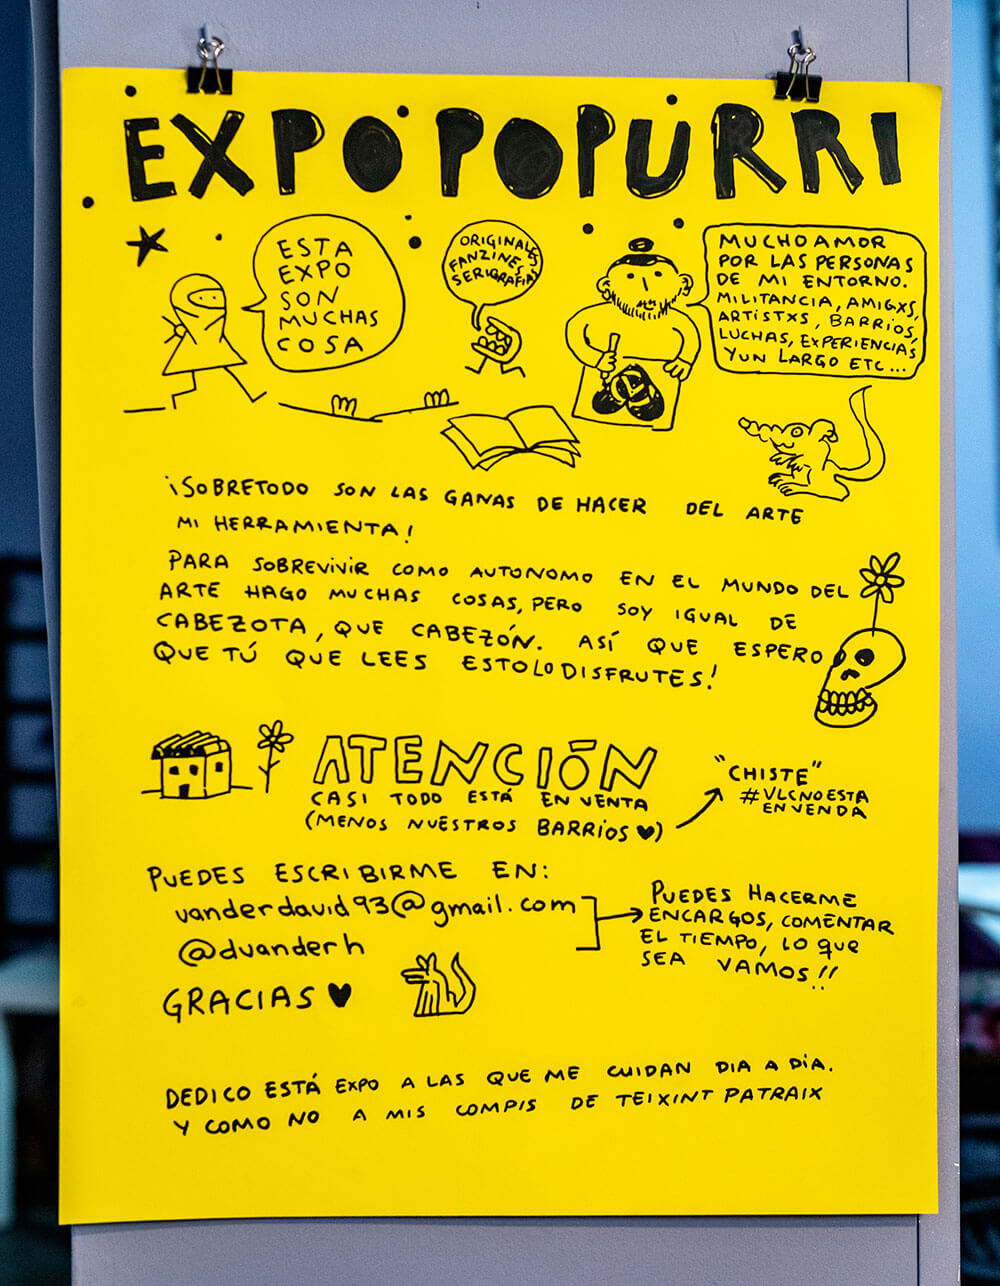 EXPO POPURRI
ESTA
EXPO
SON
MUCHAS
COSA
ORIGINALES
FANZINES
SERIGRAFIAS
MUCHO AMOR
POR LAS PERSONAS
DE MI ENTORNO.
MILITANCIA, AMIGXS,
ARTISTXS, BARRIOS,
LUCHAS, EXPERIENCIAS
Y UN LARGO ETC...
¡SOBRETODO SON LAS GANAS DE HACER DEL ARTE
MI HERRAMIENTA!
PARA SOBREVIVIR COMO AUTONOMO EN EL MUNDO DEL
ARTE HAGO MUCHAS COSAS, PERO SOY IGUAL DE
CABEZOTA, QUE CABEZÓN. ASÍ QUE ESPERO
QUE TÚ QUE LEES ESTO LO DISFRUTES!
ATENCIÓN
CASI TODO ESTÁ EN VENTA
(MENOS NUESTROS BARRIOS ♥)
"CHISTE"
#VLCNOESTA
ENVENDA
PUEDES ESCRIBIRME EN:
vanderdavid93@gmail.com
@dvanderh
PUEDES HACERME
ENCARGOS, COMENTAR
EL TIEMPO, LO QUE
SEA VAMOS!!
GRACIAS ♥
DEDICO ESTÁ EXPO A LAS QUE ME CUIDAN DIA A DÍA.
Y COMO NO A MIS COMPIS DE TEIXINT PATRAIX